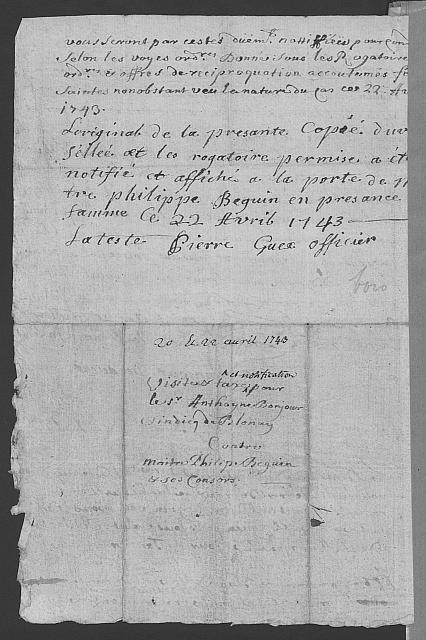 vous seront par cestes duëm.t nottiffiées pour
Selon les voyes ord.res Donné sous les Rogatoires
ord.res & offres de reciproquation accoutumés
Saintes nonobstant veu la nature du Cas ce 22
1743.
Loriginal de la presante Copiée
séllée æt les rogatoire permise a
notifié et affiché a la porte de
tre philippe Beguin en presance
famme Ce 22 Avril 1743
Lateste Pierre Guex officier
20 & 22 avril 1743
et notification
Visite & taxe pour
le Sr Anthoyne Bonjour
Sindicq de Blonay
Contre
maitre Philipe Beguin
& ses Consors.